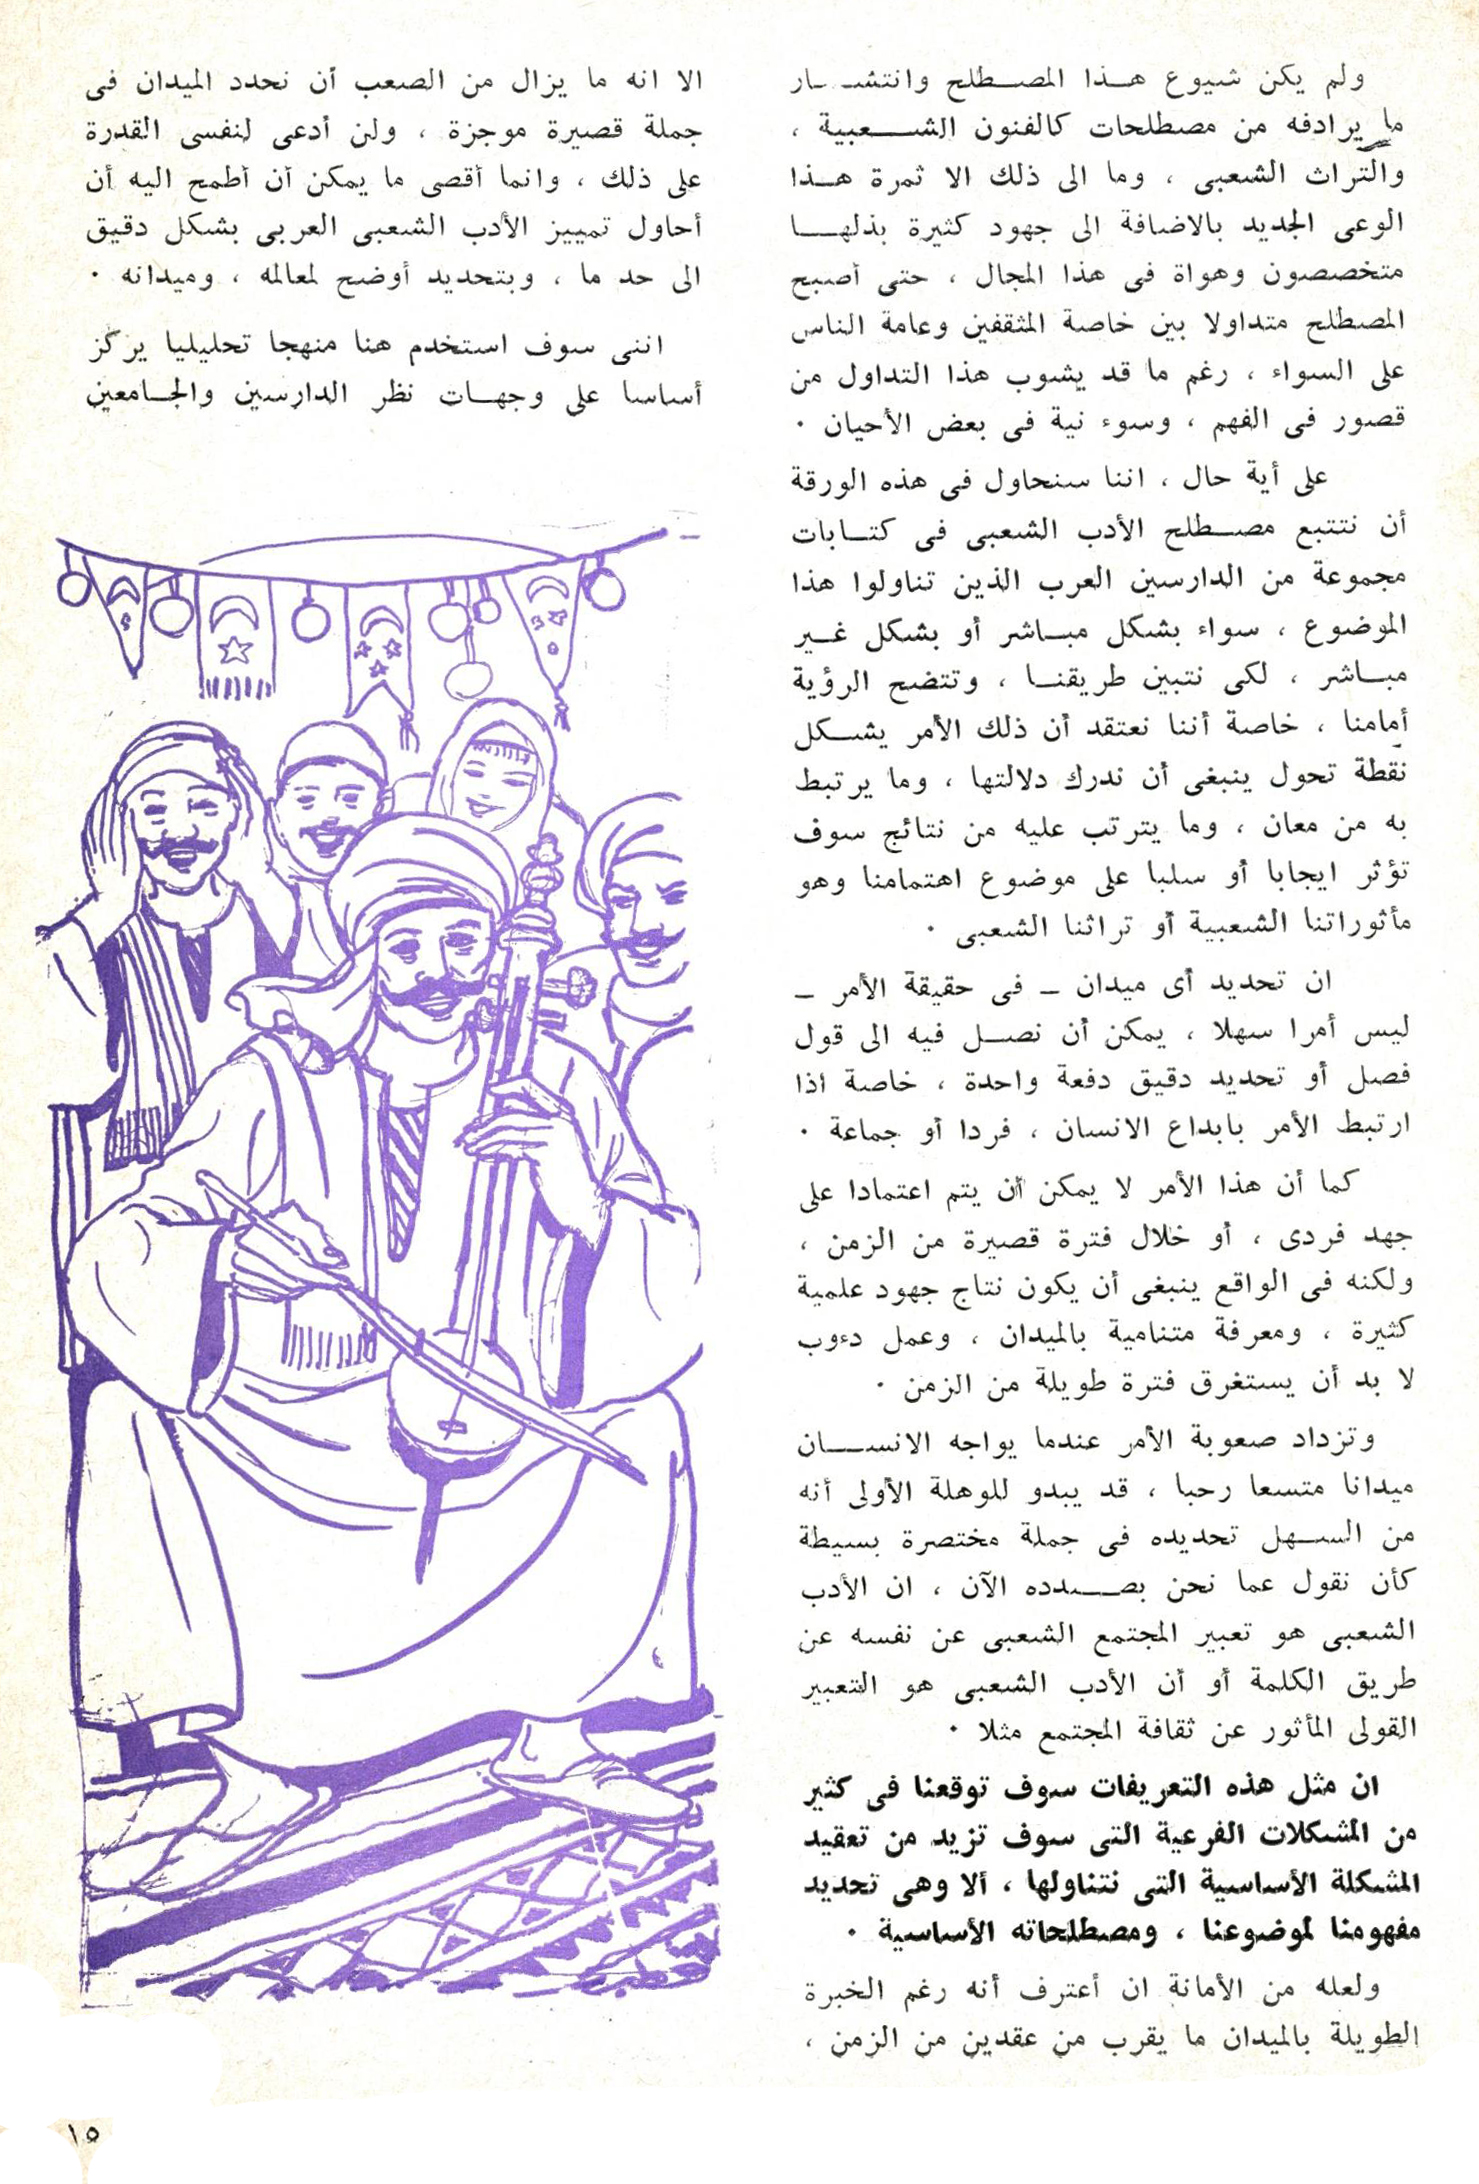 ولم يكن شيوع هذا المصطلح وانتشار
ما يرادفه من مصطلحات كالفنون الشعبية ،
والتراث الشعبى ، وما الى ذلك الا ثمرة هذا
الوعى الجديد بالاضافة الى جهود كثيرة بذلها
متخصصون وهواة فى هذا المجال ، حتى أصبح
المصطلح متداولا بين خاصة المثقفين وعامة الناس
على السواء ، رغم ما قد يشوب هذا التداول من
قصور فى الفهم ، وسوء نية فى بعض الأحيان ٠
على أية حال ، اننا سنحاول فى هذه الورقة
أن نتتبع مصطلح الأدب الشعبى فى كتابات
مجموعة من الدارسين العرب الذين تناولوا هذا
الموضوع ، سواء بشكل مباشر أو بشكل غير
مباشر ، لكى نتبين طريقنا ، وتتضح الرؤية
أمامنا ، خاصة أننا نعتقد أن ذلك الأمر يشكل
نقطة تحول ينبغى أن ندرك دلالتها ، وما يرتبط
به من معان ، وما يترتب عليه من نتائج سوف
تؤثر ايجابا أو سلبا على موضوع اهتمامنا وهو
مأثوراتنا الشعبية أو تراثنا الشعبى ٠
ان تحديد أى ميدان ـ فى حقيقة الأمر ـ
ليس أمرا سهلا ، يمكن أن نصل فيه الى قول
فصل أو تحديد دقيق دفعة واحدة ، خاصة اذا
ارتبط الأمر بابداع الانسان ، فردا أو جماعة ٠
كما أن هذا الأمر لا يمكن أن يتم اعتمادا على
جهد فردى ، أو خلال فترة قصيرة من الزمن ،
ولكنه فى الواقع ينبغى أن يكون نتاج جهود علمية
كثيرة ، ومعرفة متنامية بالميدان ، وعمل دءوب
لا بد أن يستغرق فترة طويلة من الزمن ٠
وتزداد صعوبة الأمر عندما يواجه الانسان
ميدانا متسعا رحبا ، قد يبدو للوهلة الأولى أنه
من السهل تحديده فى جملة مختصرة بسيطة
كأن نقول عما نحن بصدده الآن ، ان الأدب
الشعبى هو تعبير المجتمع الشعبى عن نفسه عن
طريق الكلمة أو أن الأدب الشعبى هو التعبير
القولى المأثور عن ثقافة المجتمع مثلا ٠
ان مثل هذه التعريفات سوف توقعنا فى كثير
من المشكلات الفرعية التى سوف تزيد من تعقيد
المشكلة الأساسية التى نتناولها ، ألا وهى تحديد
مفهومنا لموضوعنا ، ومصطلحاته الأساسية ٠
ولعله من الأمانة ان أعترف أنه رغم الخبرة
الطويلة بالميدان ما يقرب من عقدين من الزمن ،
الا انه ما يزال من الصعب أن نحدد الميدان فى
جملة قصيرة موجزة ، ولن أدعى لنفسى القدرة
على ذلك ، وانما أقصى ما يمكن أن أطمح اليه أن
أحاول تمييز الأدب الشعبى العربى بشكل دقيق
الى حد ما ، وبتحديد أوضح لمعالمه ، وميدانه ٠
اننى سوف استخدم هنا منهجا تحليليا يركز
أساسا على وجهات نظر الدارسين والجامعين
١٥